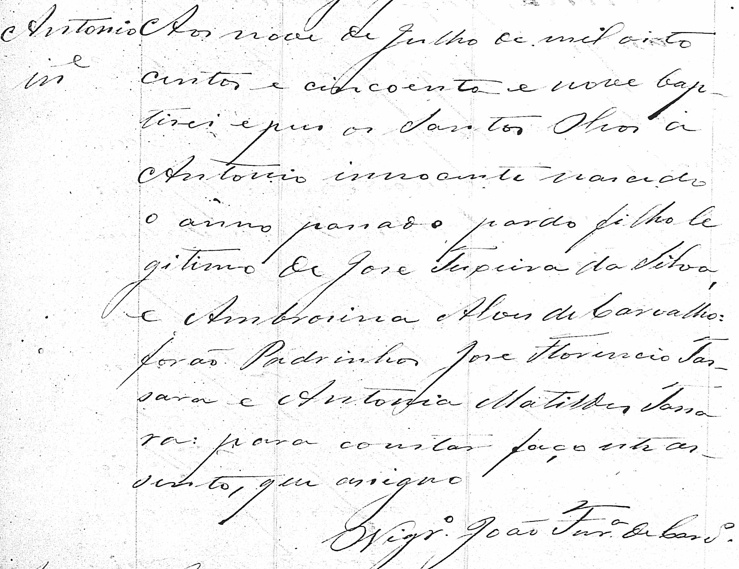 Antonio Aos nove de Julho de mil oito
in.e centos e cincoenta e nove bap-
tisei e pus os Santos Olios a
Antonio innocente nascido
o anno passado pardo filho le
gitimo de Jose Teixeira da Silva,
e Ambrosina Alves de Carvalho:
forão Padrinhos Jose Florencio Tas-
sara e Antonia Matildes Tassa
ra: para constar faço este as-
sento, que assigno
O Vigr.o João Ferr.a de Carv.o